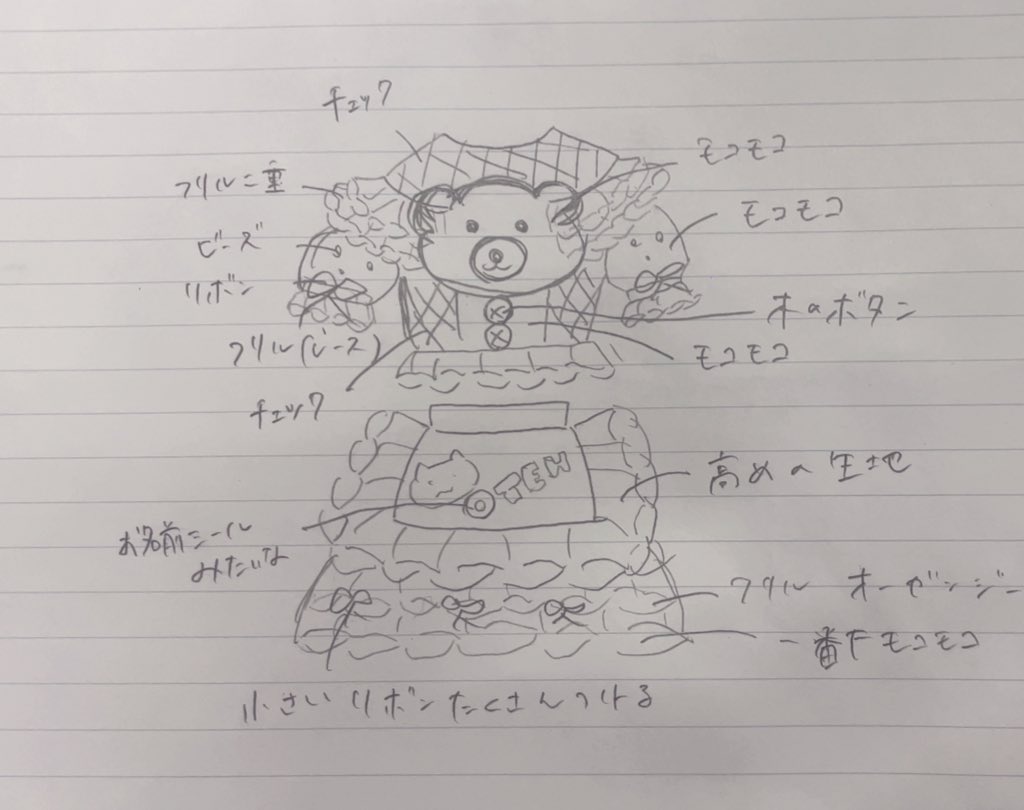 チェック
モコモコ
フリル二重
モコモコ
ビーズ
リボン
木のボタン
フリル(レース)
モコモコ
チェック
高めの生地
TEN
お名前シール
みたいな
フリル オーガンジー
一番下モコモコ
小さいリボンたくさんつける